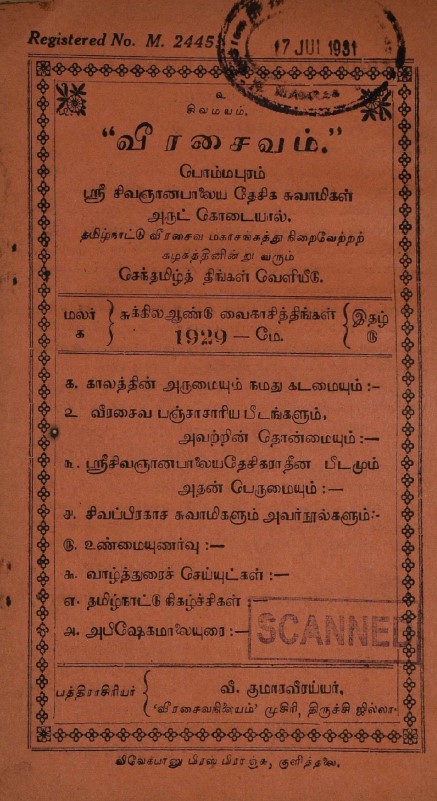 Registered No. M. 2445
17 JUI 1931
உ
சிவமயம்.
"வீரசைவம்."
பொம்மபுரம்
ஸ்ரீ சிவஞானபாலைய தேசிக சுவாமிகள்
அருட் கொடையால்.
தமிழ்நாட்டு வீரசைவ மகாசங்கத்து நிறைவேற்றற்
கழகத்தினின்று வரும்
செந்தமிழ்த் திங்கள் வெளியீடு.
மலர் க சுக்கிலஆண்டு வைகாசித்திங்கள் இதழ் ரு
1929 — மே.
க. காலத்தின் அருமையும் நமது கடமையும் :-
உ வீரசைவ பஞ்சாசாரிய பீடங்களும்,
அவற்றின் தொன்மையும் :—
ந. ஸ்ரீசிவஞானபாலையதேசிகராதீன பீடமும்
அதன் பெருமையும் :—
ச. சிவப்பிரகாச சுவாமிகளும் அவர்நூல்களும்:-
ரு. உண்மையுணர்வு :—
சு. வாழ்த்துரைச் செய்யுட்கள் :—
எ. தமிழ்நாட்டு நிகழ்ச்சிகள் :—
அ. அபிஷேகமாலையுரை :—
SCANNED
பத்திராசிரியர் வீ. குமாரவீரய்யர்,
'வீரசைவநிலையம்' முசிரி, திருச்சி ஜில்லா.
விவேகபானு பிரஸ் பிராஞ்சு, குளித்தலை.